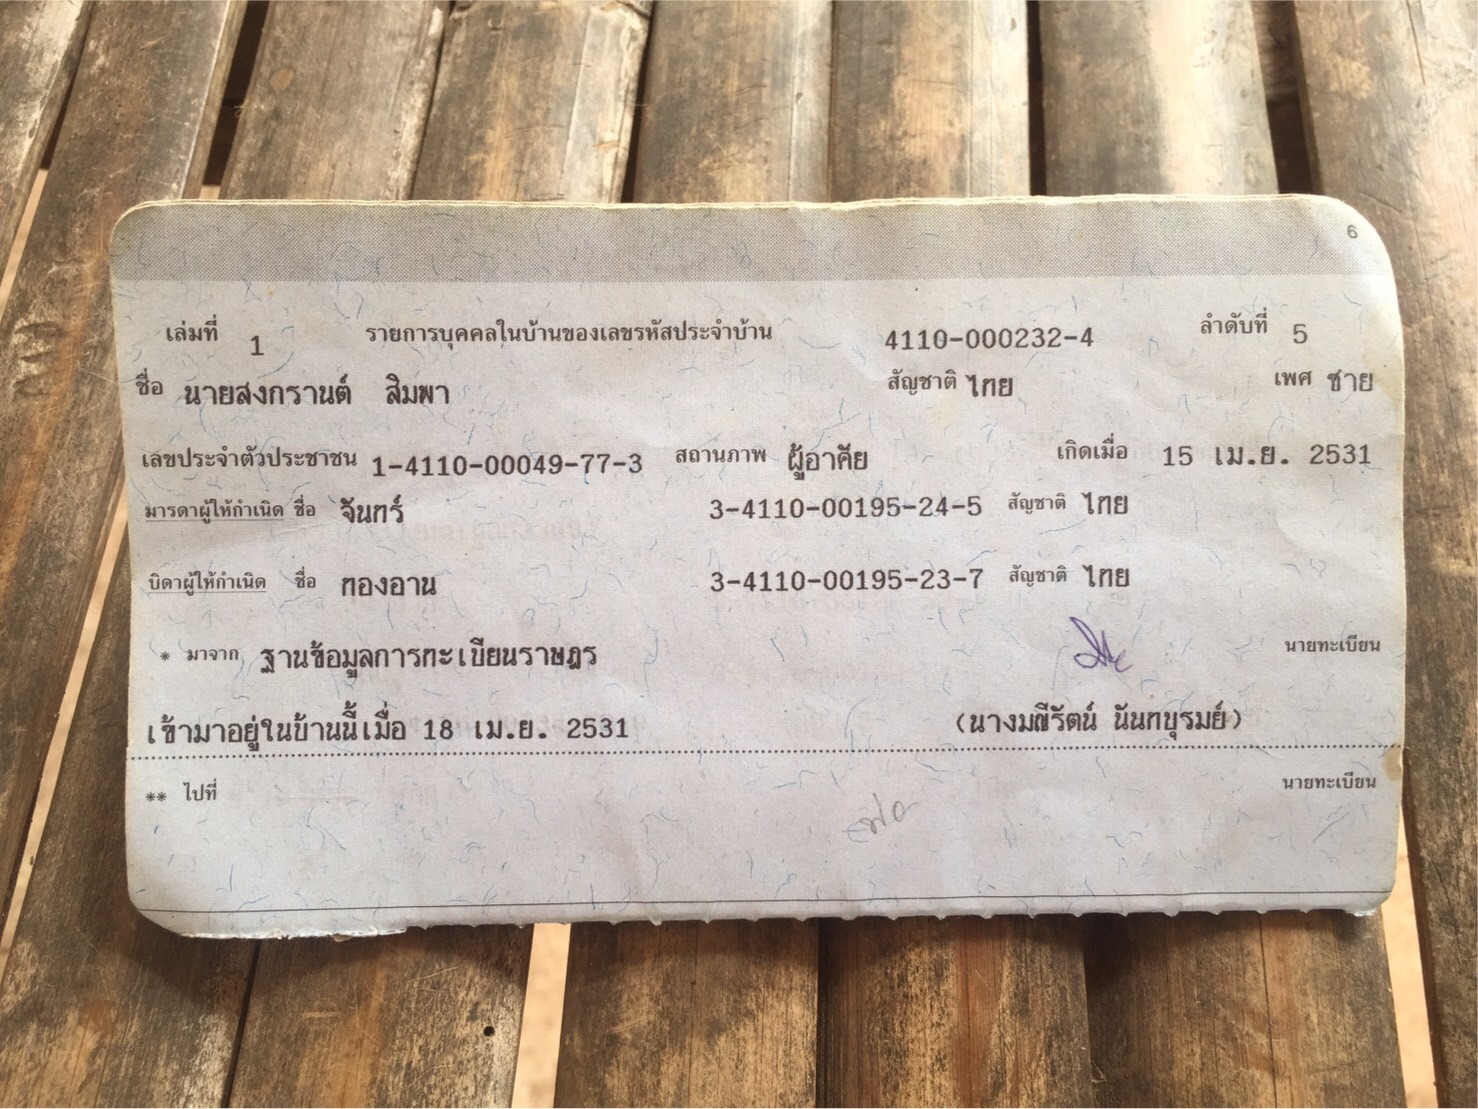 6
เล่มที่ 1 รายการบุคคลในบ้านของเลขรหัสประจำบ้าน 4110-000232-4 ลำดับที่ 5
ชื่อ นายสงกรานต์ สิมพา สัญชาติ ไทย เพศ ชาย
เลขประจำตัวประชาชน 1-4110-00049-77-3 สถานภาพ ผู้อาศัย เกิดเมื่อ 15 เม.ย. 2531
มารดาผู้ให้กำเนิด ชื่อ จันทร์ 3-4110-00195-24-5 สัญชาติ ไทย
บิดาผู้ให้กำเนิด ชื่อ ทองอาน 3-4110-00195-23-7 สัญชาติ ไทย
* มาจาก ฐานข้อมูลการทะเบียนราษฎร นายทะเบียน
เข้ามาอยู่ในบ้านนี้เมื่อ 18 เม.ย. 2531 (นางมณีรัตน์ นันทบุรมย์)
** ไปที่ นายทะเบียน